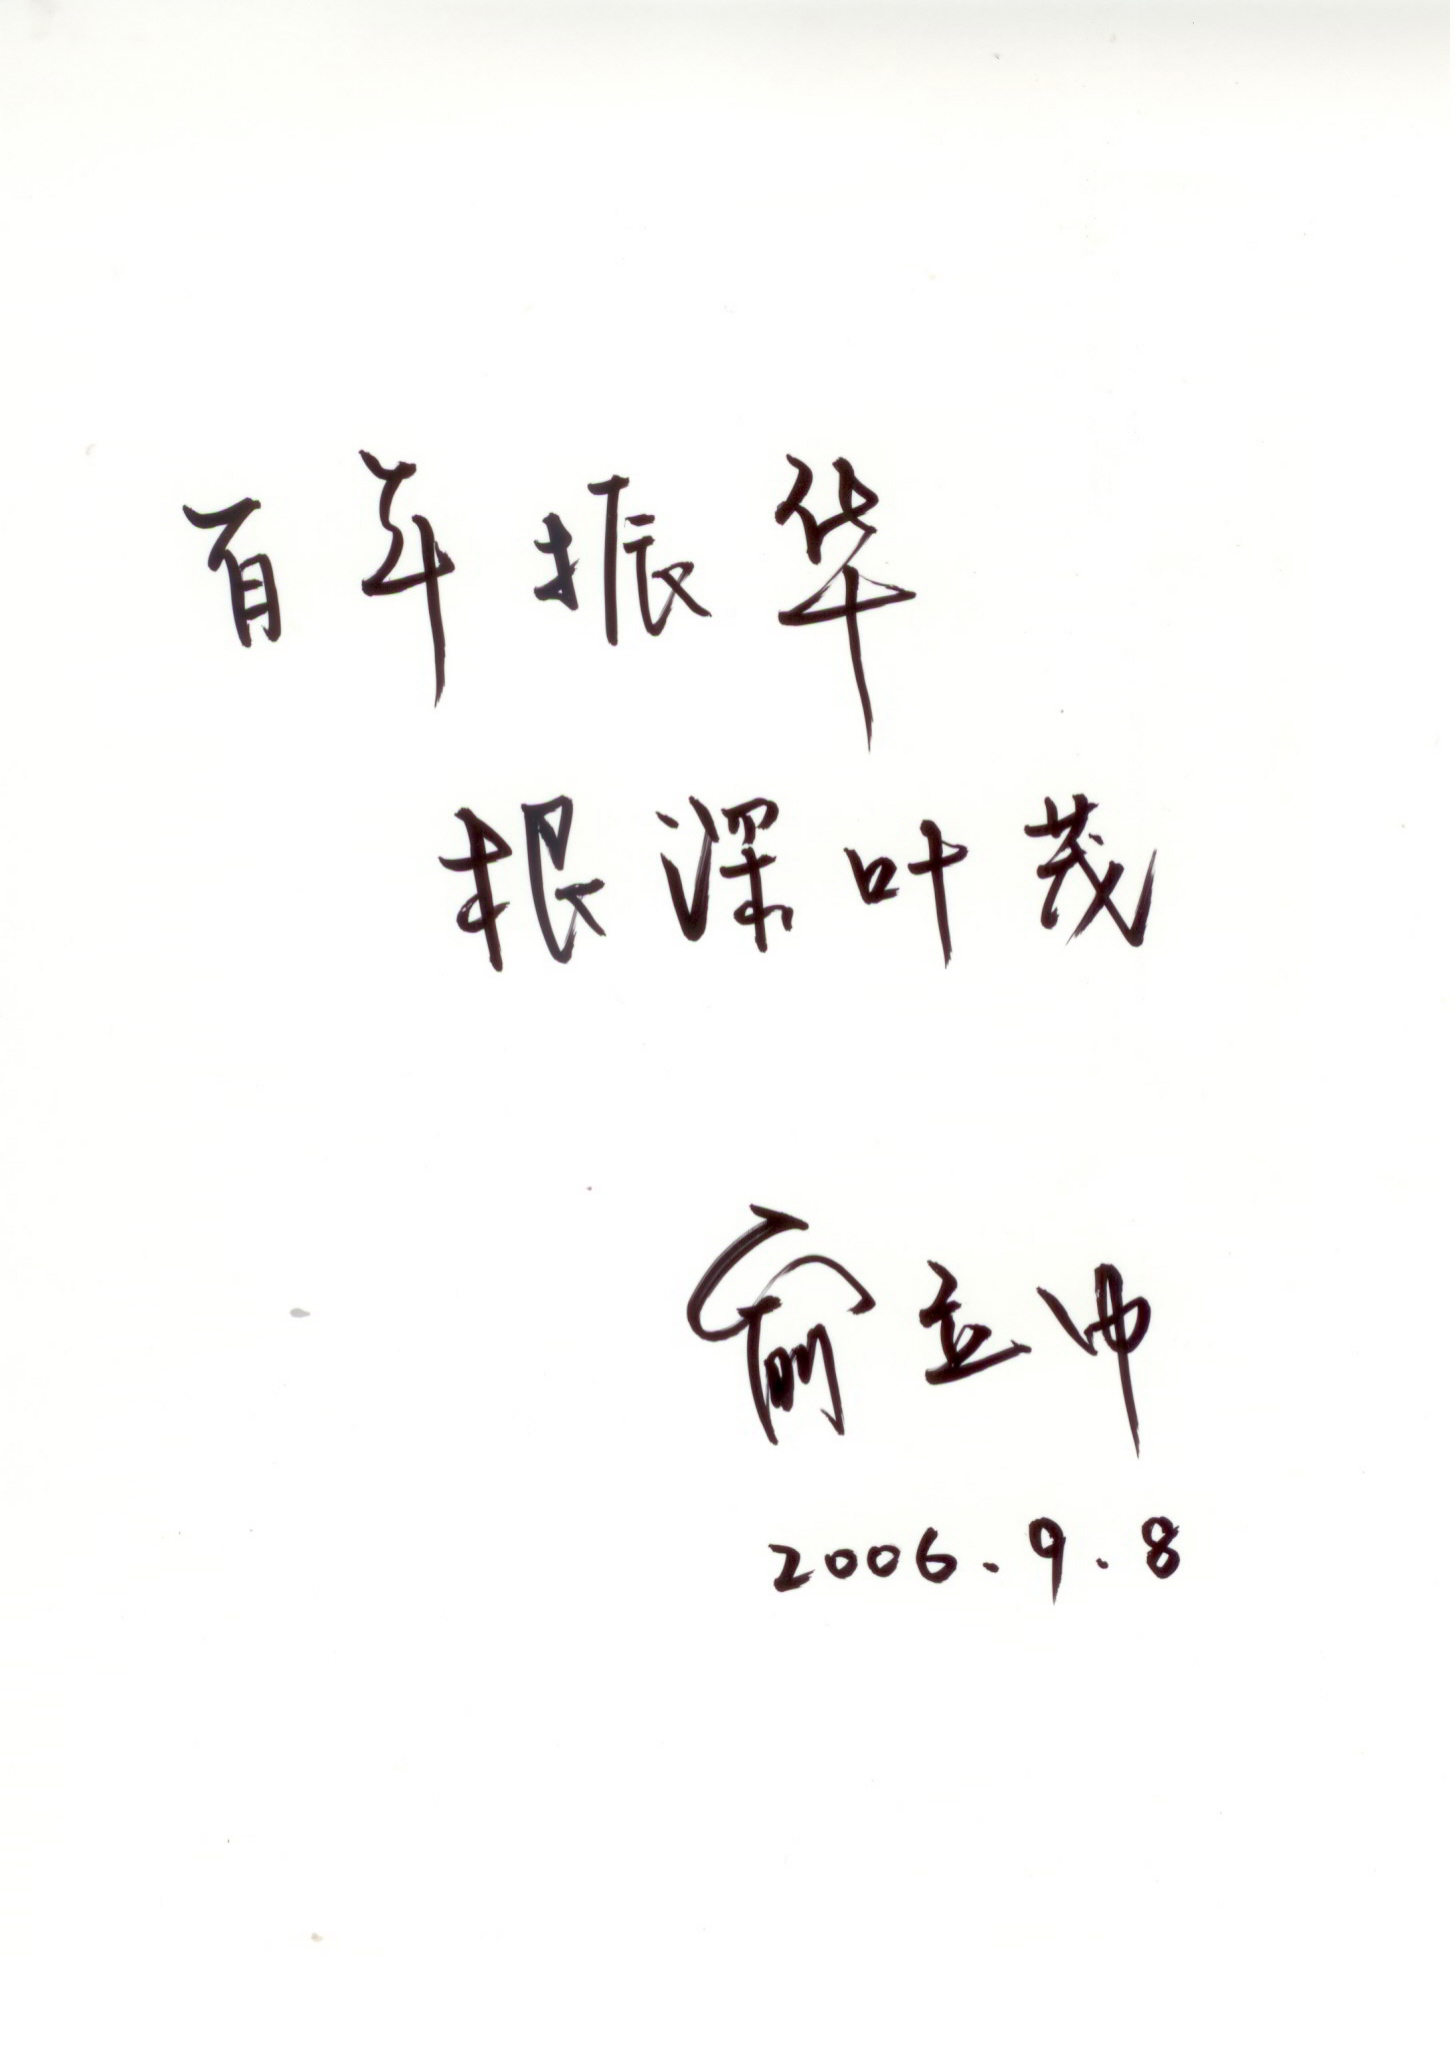 百年振华
根深叶茂
俞立中
2006.9.8